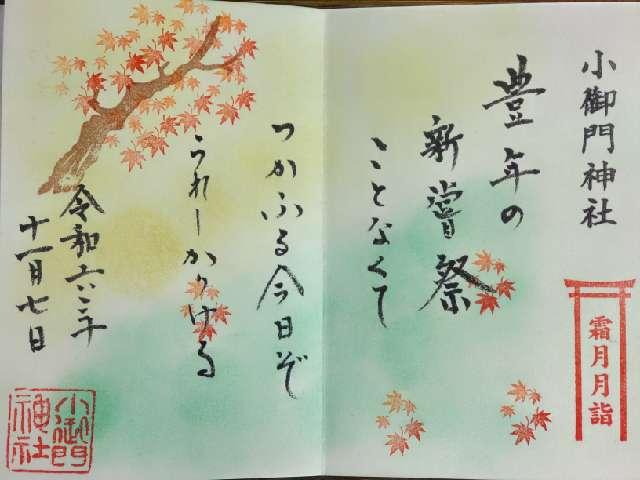 小御門神社
霜月月詣
豊年の
新嘗祭
ことなくて
つかふる今日ぞ
うれしかりける
令和六年
十一月七日
小御門
神社